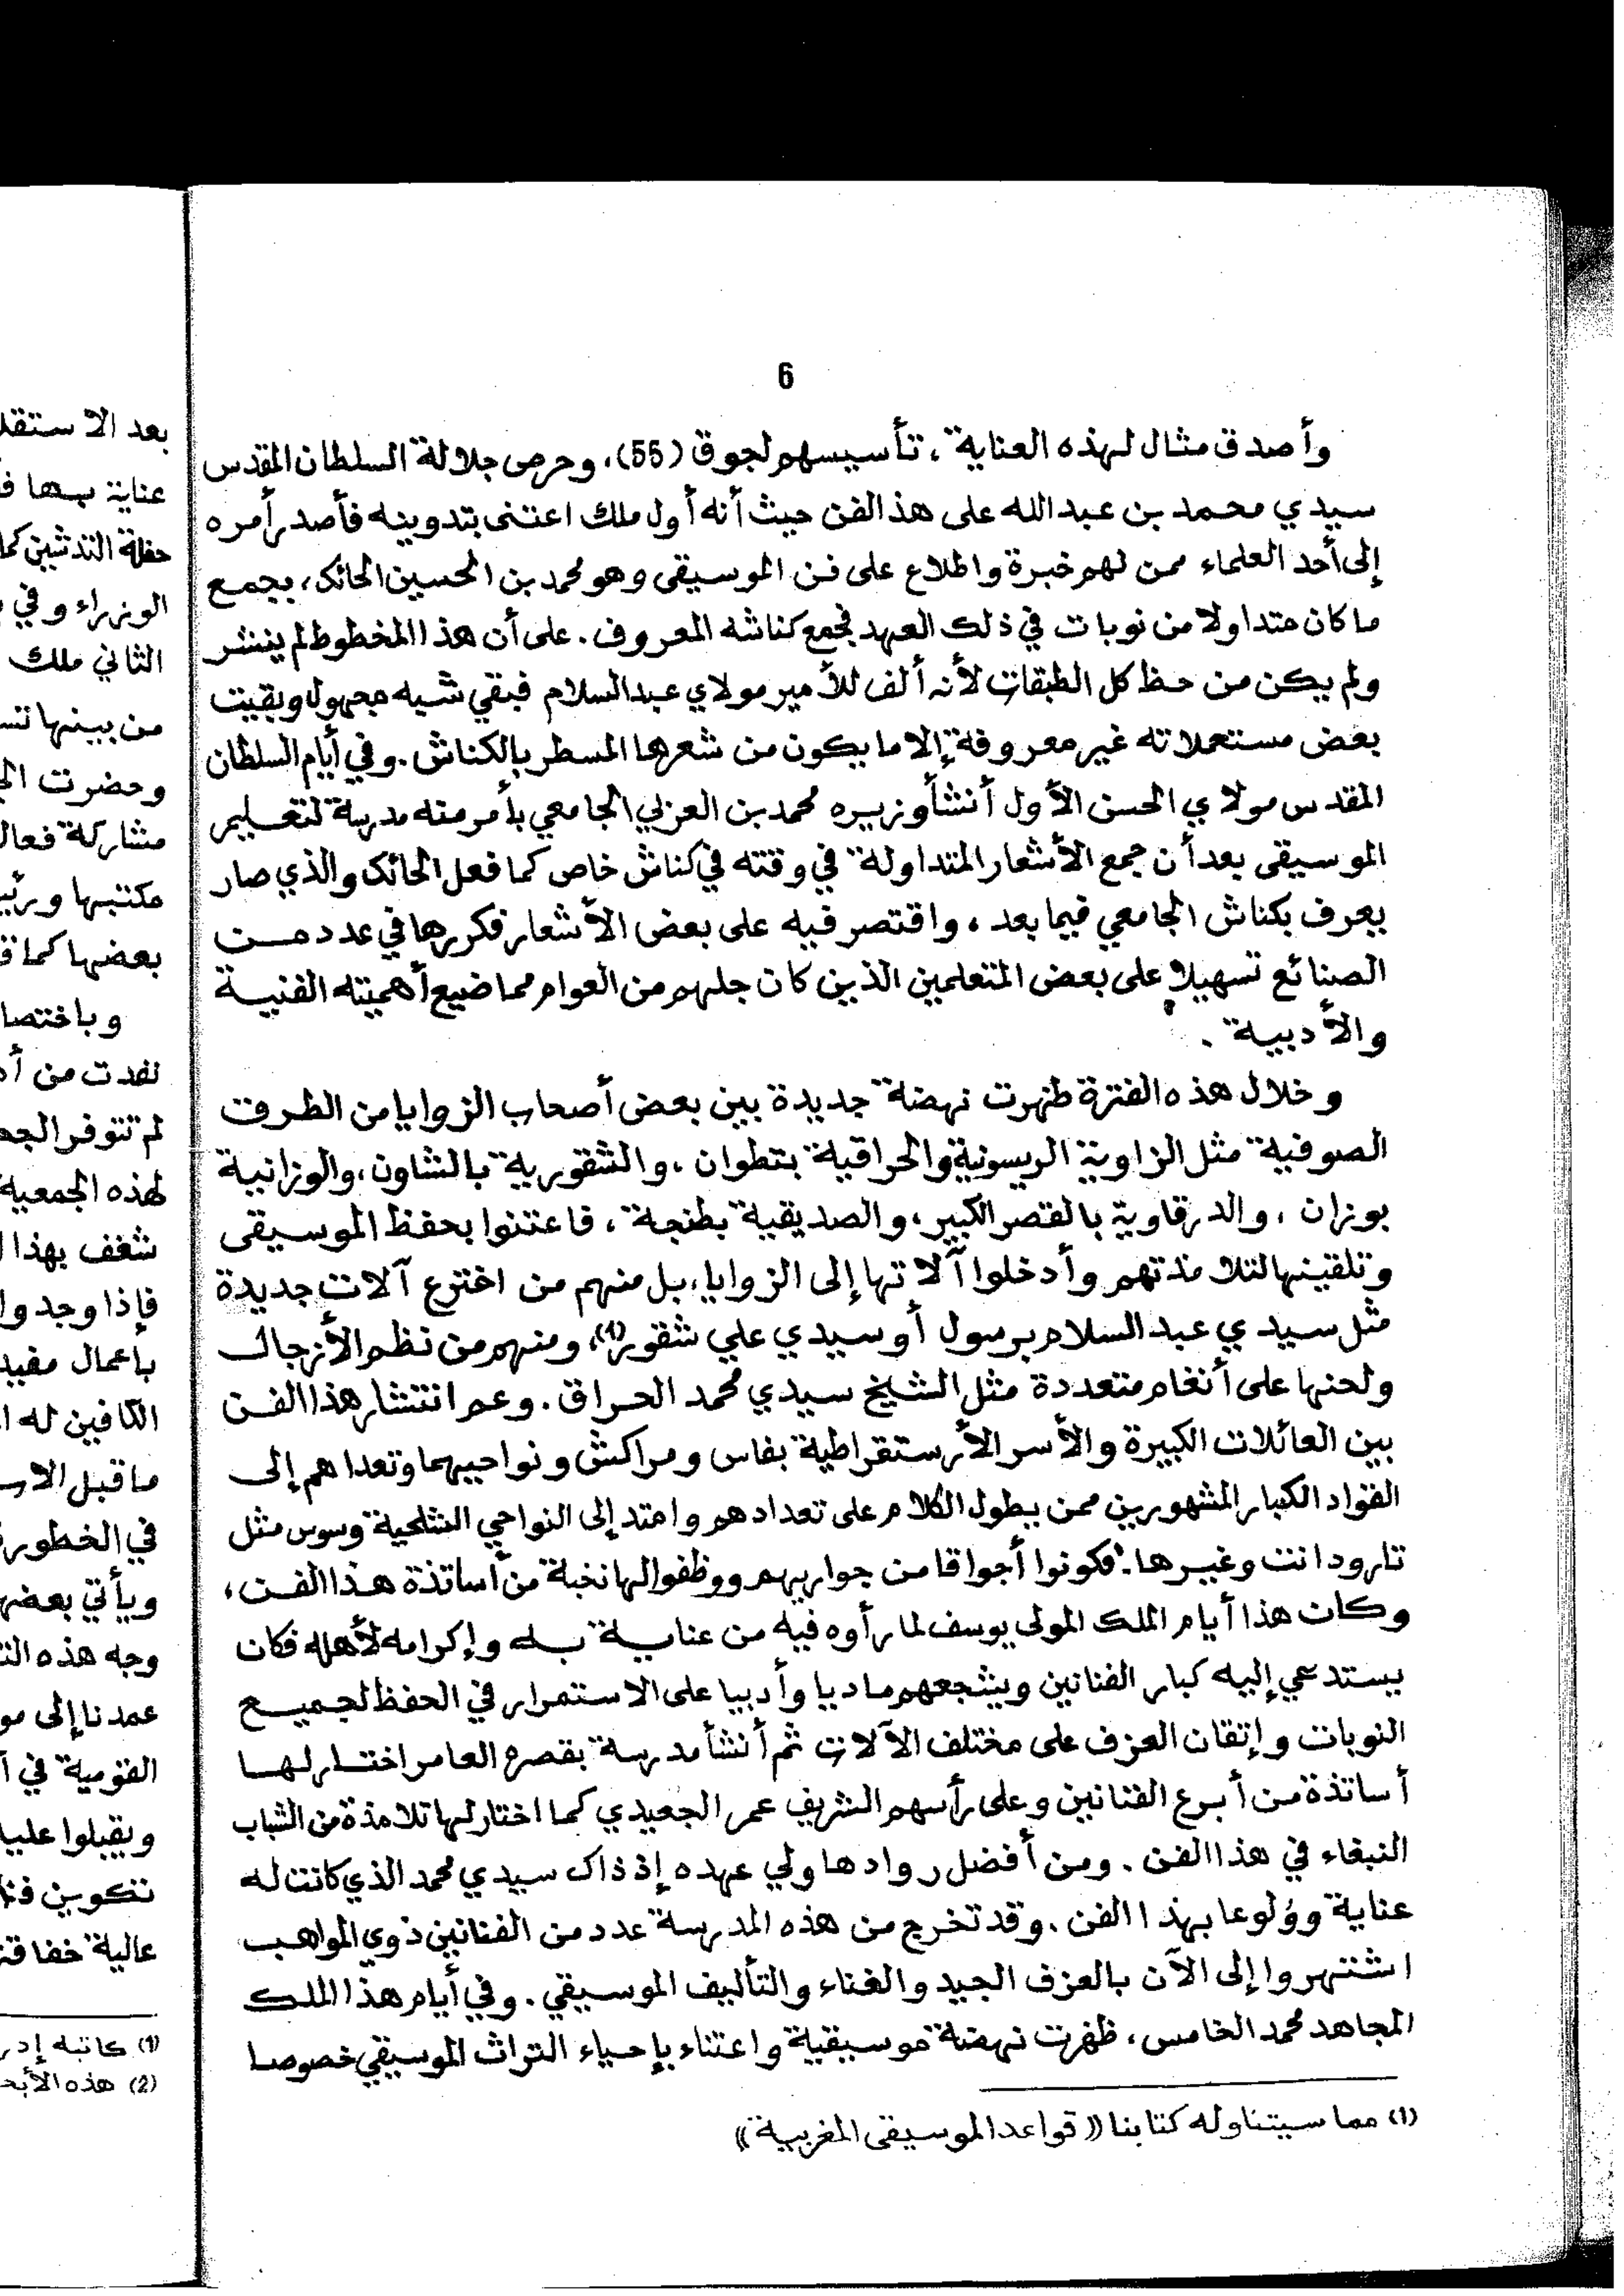 6
وأصدق مثال لهذه العناية، تأسيسهم لجوق (55)، وحرص جلالة السلطان المقدس
سيدي محمد بن عبد الله على هذ الفن حيث أنه أول ملك اعتنى بتدوينه فأصدر أمره
إلى أحد العلماء ممن لهم خبرة واطلاع على فن الموسيقى وهو محمد بن الحسين الحائك، بجمع
ما كان متداولا من نوبات في ذلك العهد فجمع كناشه المعروف. على أن هذا المخطوط لم ينشر
ولم يكن من حظ كل الطبقات لأنه ألف للأمير مولاي عبد السلام فبقي شبه مجهول وبقيت
بعض مستعملاته غير معروفة إلا ما يكون من شعرها المسطر بالكناش. وفي أيام السلطان
المقدس مولاي الحسن الأول أنشأ وزيره محمد بن العربي الجامعي بأمر منه مدرسة لتعليم
الموسيقى بعد أن جمع الأشعار المتداولة في وقته في كناش خاص كما فعل الحائك والذي صار
يعرف بكناش الجامعي فيما بعد، واقتصر فيه على بعض الأشعار فكررها في عدد من
الصنائع تسهيلا على بعض المتعلمين الذين كان جلهم من العوام مما ضيع أهميته الفنية
والأدبية.
وخلال هذه الفترة ظهرت نهضة جديدة بين بعض أصحاب الزوايا من الطرق
الصوفية مثل الزاوية الريسونية والحراقية بتطوان، والشقورية بالشاون، والوزانية
بوزان، والدرقاوية بالقصر الكبير، والصديقية بطنجة، فاعتنوا بحفظ الموسيقى
وتلقينها لتلامذتهم وأدخلوا آلاتها إلى الزوايا، بل منهم من اخترع آلات جديدة
مثل سيدي عبد السلام برسول أو سيدي علي شقور(1)، ومنهم من نظم الأزجال
ولحنها على أنغام متعددة مثل الشيخ سيدي محمد الحراق. وعم انتشار هذا الفن
بين العائلات الكبيرة والأسر الأرستقراطية بفاس ومراكش ونواحيهما وتعداهم إلى
القواد الكبار المشهورين ممن يطول الكلام على تعدادهم وامتد إلى النواحي الشلحية وسوس مثل
تارودانت وغيرها. فكونوا أجواقا من جواريهم ووظفوا لها نخبة من أساتذة هذا الفن،
وكان هذا أيام الملك المولى يوسف لما رأوه فيه من عناية به وإكرامه لأهله فكان
يستدعي إليه كبار الفنانين ويشجعهم ماديا وأدبيا على الاستمرار في الحفظ لجميع
النوبات وإتقان العزف على مختلف الآلات ثم أنشأ مدرسة بقصره العامر اختار لها
أساتذة من أبرع الفنانين وعلى رأسهم الشريف عمر الجعيدي كما اختار لها تلامذة من الشباب
النبغاء في هذا الفن. ومن أفضل روادها ولي عهده إذ ذاك سيدي محمد الذي كانت له
عناية وولوعا بهذا الفن. وقد تخرج من هذه المدرسة عدد من الفنانين ذوي المواهب
اشتهروا إلى الآن بالعزف الجيد والغناء والتأليف الموسيقي. وفي أيام هذا الملك
المجاهد محمد الخامس، ظفرت نهضة موسيقية واعتناء بإحياء التراث الموسيقي خصوصا
(1) مما سيتناوله كتابنا ((قواعد الموسيقى المغربية))
بعد الاستقلا
عناية بها
حفلة التدشين كما
الوزراء وفي
الثاني ملك
من بينها
وحضرت
مشاركة فعال
مكتبها
بعضها كما
وباختصا
نفدت من
لم تتوفر
لهذه الجمعية
شغف بهذا
فإذا وجد وا
بأعمال مفيد
الكافين له
ما قبل الا
في الخطور
ويأتي بعض
وجه هذه
عمدنا إلى مو
القومية في
ويقبلوا عليـ
تكوين
عالية خفاقة
(1) كاتبه إدر
(2) هذه الأبحـ